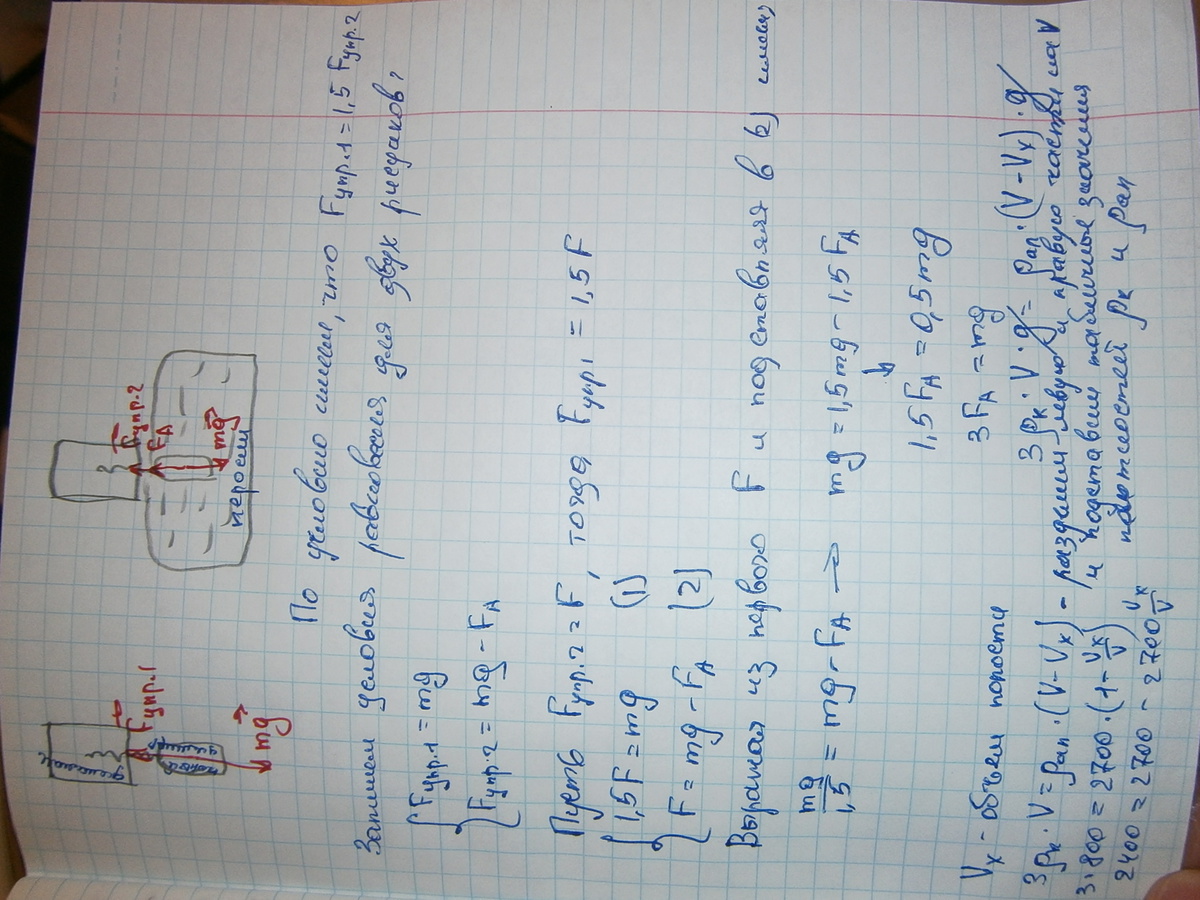 динамом.
полый
цилиндр
Fупр.1
mg
Fупр.2
FA
mg
керосин
По условию имеем, что Fупр.1 = 1,5 Fупр.2
Запишем условия равновесия для двух рисунков:
{ Fупр.1 = mg
Fупр.2 = mg - FA
Пусть Fупр.2 = F, тогда Fупр1 = 1,5F
{ 1,5F = mg (1)
F = mg - FA (2)
Выражая из первого F и подставляя в (2) имеем,
mg/1,5 = mg - FA → mg = 1,5mg - 1,5FA
↓
1,5FA = 0,5mg
3FA = mg
Vx - объём полости 3ρк·V·g = ρал·(V-Vx)·g
3ρк·V = ρал·(V-Vx) - разделим левую и правую части на V
и подставим табличные значения
3·800 = 2700·(1-Vx/V) плотностей ρк и ρал
2400 = 2700 - 2700 Vx/V